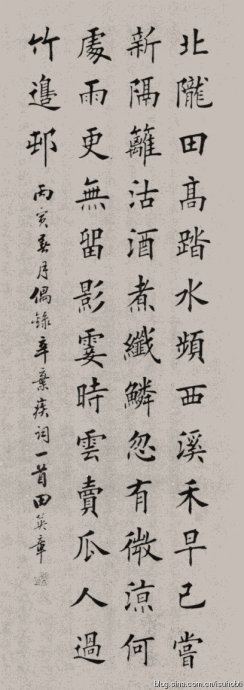 北隴田高踏水頻西溪禾早已嘗
新隔籬沽酒煮纖鱗忽有微涼何
處雨更無留影霎時雲賣瓜人過
竹邊邨
丙寅春月偶錄辛棄疾詞一首田英章
blog.sina.com.cn/isuhobli